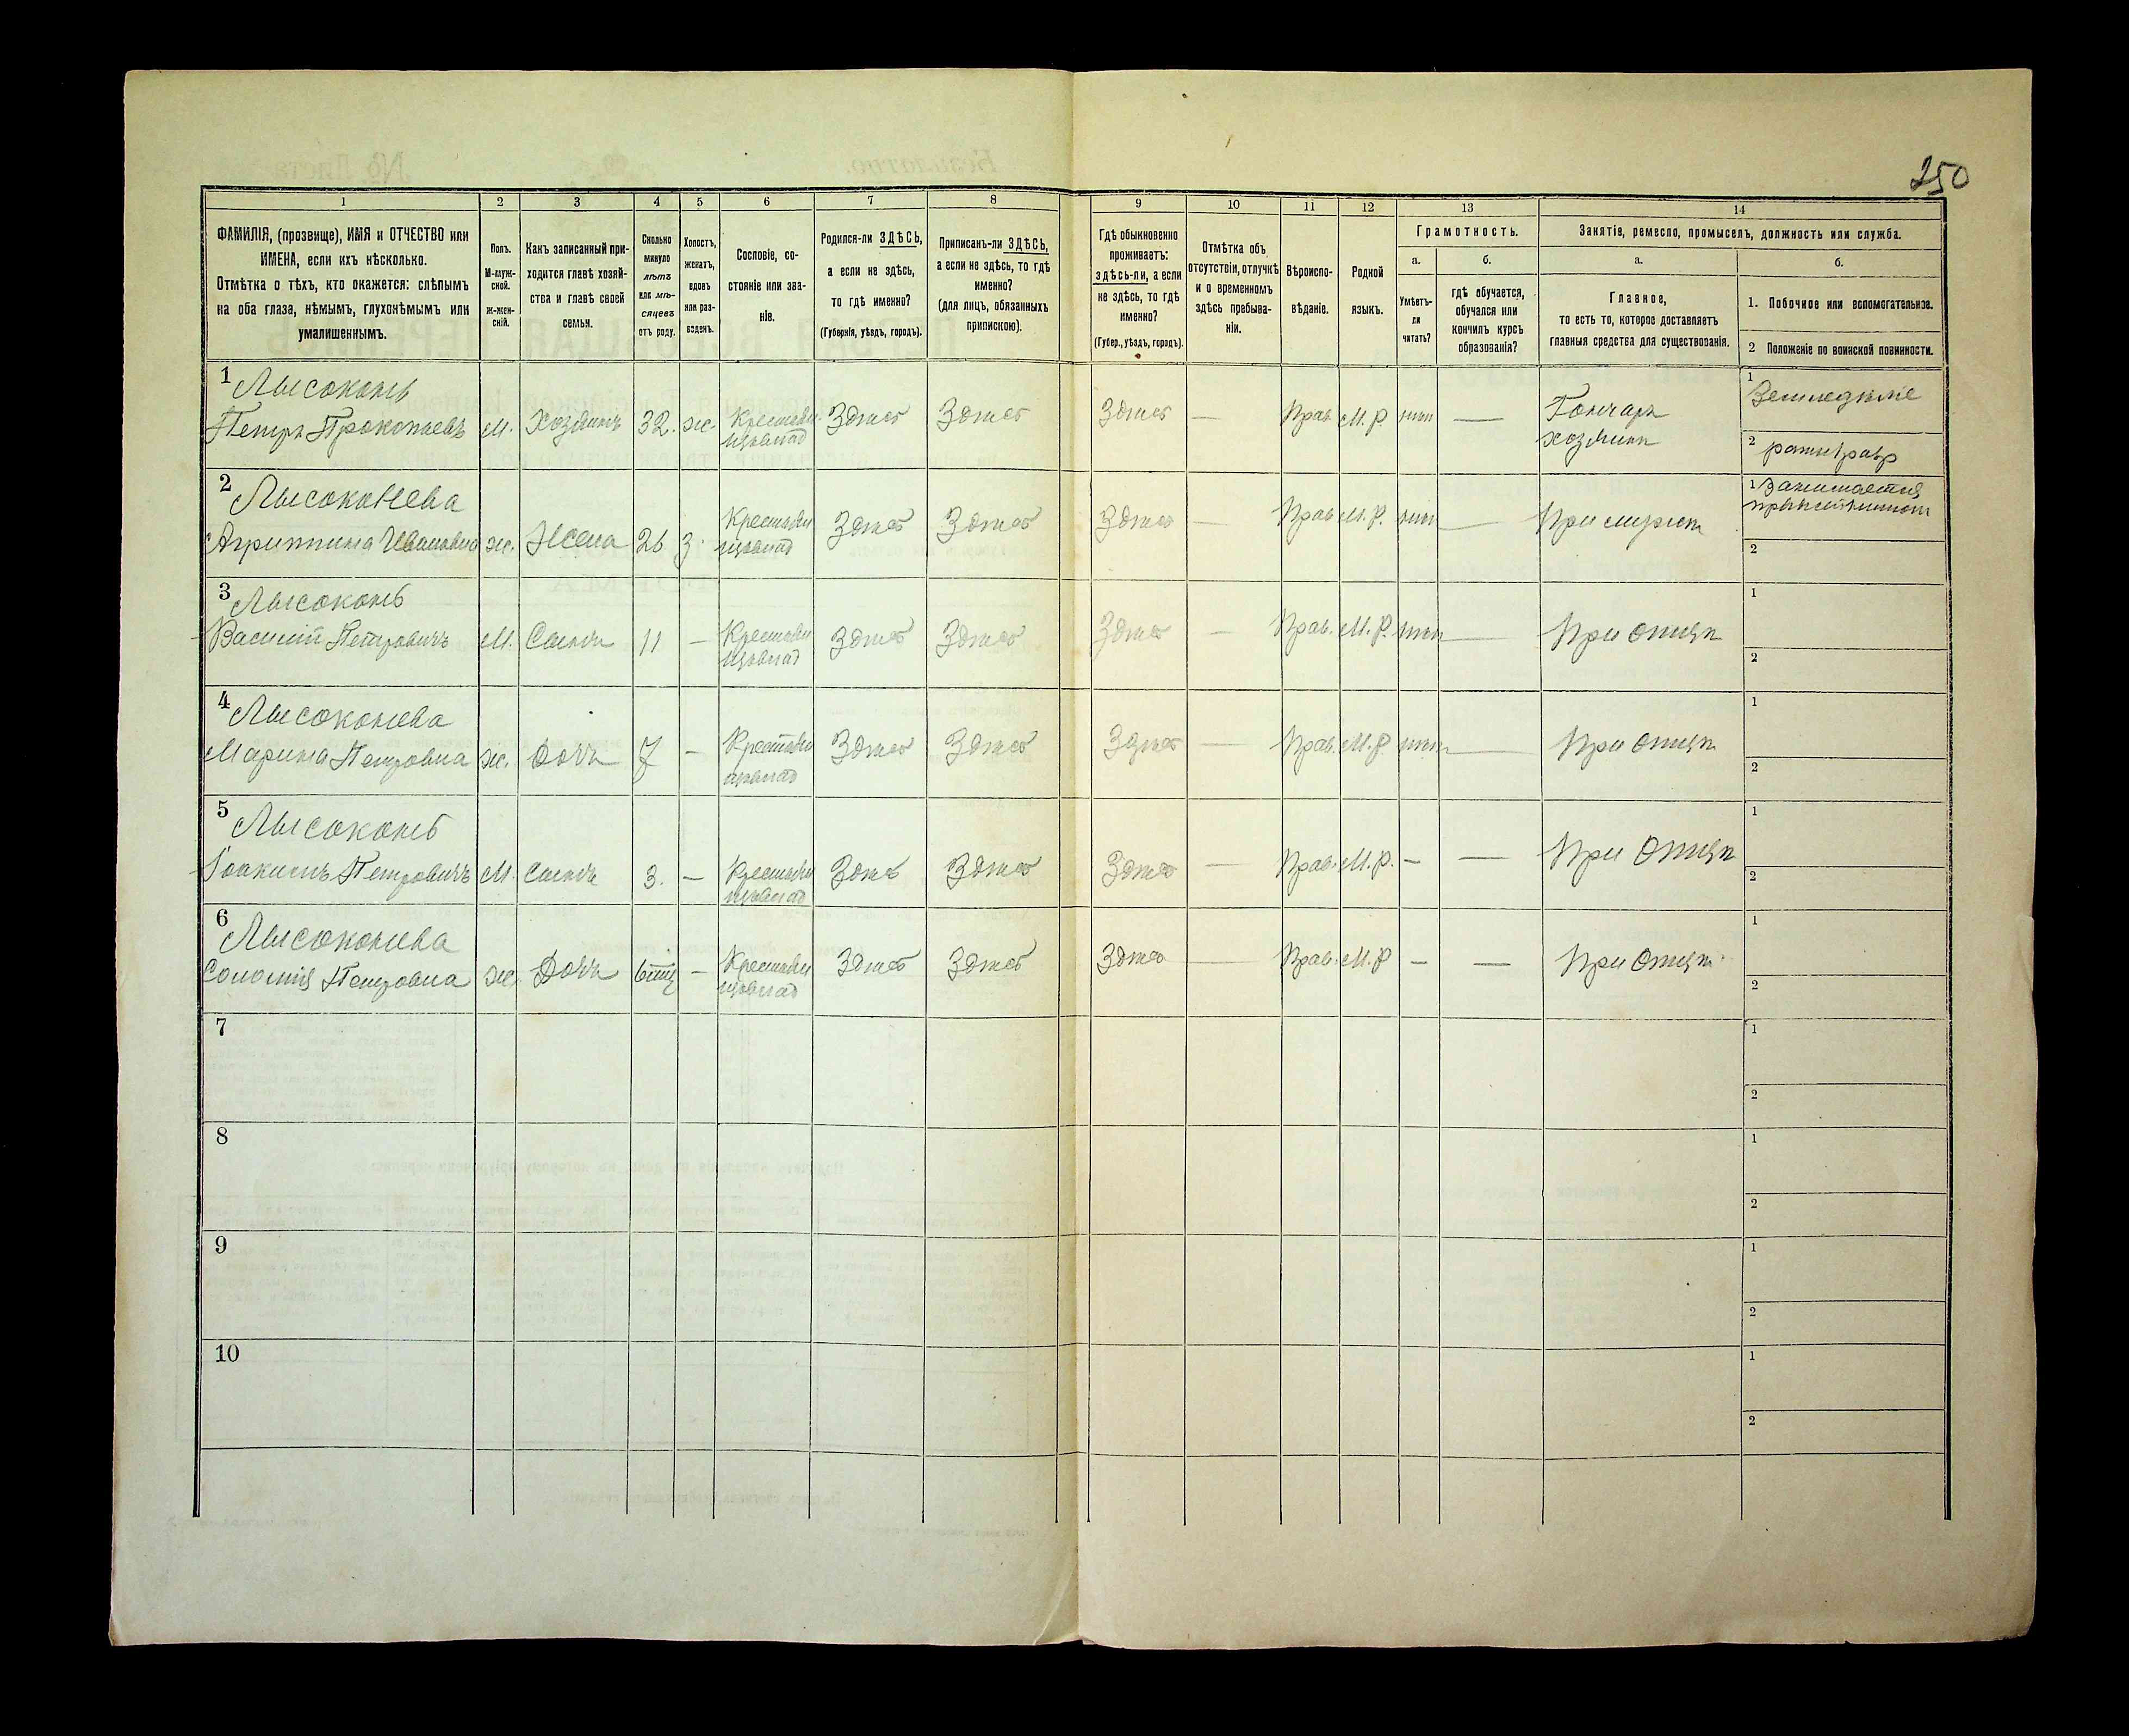 250
1
2
3
4
5
6
7
8
9
10
11
12
13
14
ФАМИЛІЯ, (прозвище), ИМЯ и ОТЧЕСТВО или
ИМЕНА, если ихъ нѣсколько.
Отмѣтка о тѣхъ, кто окажется: слѣпымъ
на оба глаза, нѣмымъ, глухонѣмымъ или
умалишеннымъ.
Полъ.
М-муж-
ской.
Ж-жен-
скій.
Какъ записанный при-
ходится главѣ хозяй-
ства и главѣ своей
семьи.
Сколько
минуло
лѣтъ
или мѣ-
сяцевъ
отъ роду.
Холостъ,
женатъ,
вдовъ
или раз-
веденъ.
Сословіе, со-
стояніе или зва-
ніе.
Родился-ли ЗДѢСЬ,
а если не здѣсь,
то гдѣ именно?
(Губернія, уѣздъ, городъ).
Приписанъ-ли ЗДѢСЬ,
а если не здѣсь, то гдѣ
именно?
(для лицъ, обязанныхъ
припискою).
Гдѣ обыкновенно
проживаетъ:
здѣсь-ли, а если
не здѣсь, то гдѣ
именно?
(Губер., уѣздъ, городъ).
Отмѣтка объ
отсутствіи, отлучкѣ
и о временномъ
здѣсь пребыва-
ніи.
Вѣроиспо-
вѣданіе.
Родной
языкъ.
Грамотность.
а.
Умѣетъ-
ли
читать?
б.
гдѣ обучается,
обучался или
кончилъ курсъ
образованія?
Занятіе, ремесло, промыселъ, должность или служба.
а.
Главное,
то есть то, которое доставляетъ
главныя средства для существованія.
б.
1. Побочное или вспомогательное.
2 Положеніе по воинской повинности.
1 Лысоконь
Петръ Прокопьевъ М. Хозяинъ 32. ж. Крестьян. Здѣсь Здѣсь Здѣсь — Прав. М.Р. нѣтъ — Гончаръ
хозяинъ
1 Земледѣліе
2
2 Лысоконева
Агрипина Ивановна ж. Жена 26 з. Крестьян Здѣсь Здѣсь Здѣсь — Прав М.Р. нѣтъ — При мужѣ
1 Занимается
2
3 Лысоконь
Василій Петровичъ М. Сынъ 11 — Крестьян Здѣсь Здѣсь Здѣсь — Прав. М.Р. нѣтъ — При отцѣ
1
2
4 Лысоконева
Марина Петровна ж. Дочь 7 — Крестьян Здѣсь Здѣсь Здѣсь — Прав. М.Р. нѣтъ — При отцѣ
1
2
5 Лысоконь
Іоакимъ Петровичъ М. Сынъ 3. — Крестьян Здѣсь Здѣсь Здѣсь — Прав. М.Р. — — При отцѣ
1
2
6 Лысоконева
Соломія Петровна ж. Дочь — Крестьян Здѣсь Здѣсь Здѣсь — Прав. М.Р — — При отцѣ
1
2
7
1
2
8
1
2
9
1
2
10
1
2